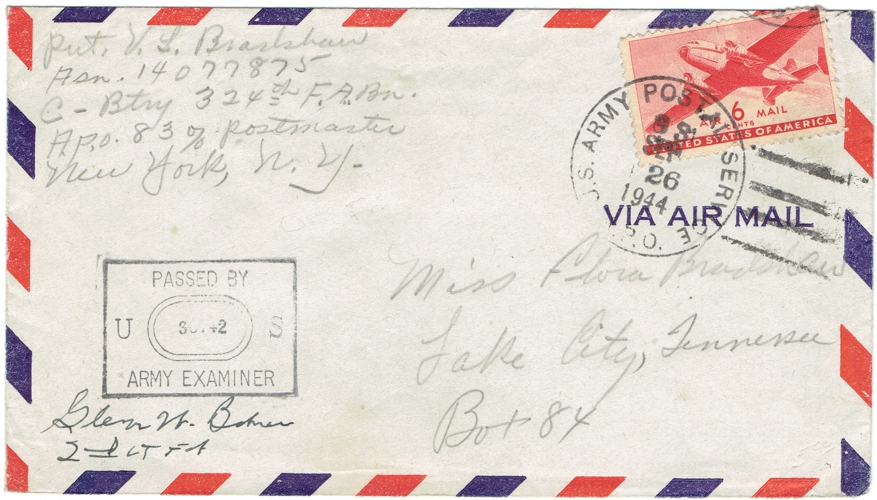 Pvt. V. L. Bradshaw
Asn. 14077875
C - Btry 324th F.A.Bn.
A.P.O. 83 % Postmaster
New York, N. Y.
6
AIR CENTS MAIL
UNITED STATES OF AMERICA
U.S. ARMY POSTAL SERVICE
SEP
26
1944
A.P.O.
VIA AIR MAIL
PASSED BY
U S
ARMY EXAMINER
Glenn W.
2nd LT FA
Miss Flora Bradshaw
Lake City, Tennessee
Box 84